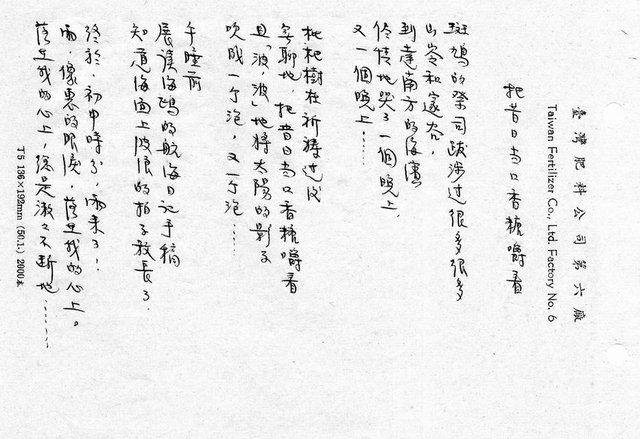 臺灣肥料公司第六廠
Taiwan Fertilizer Co., Ltd. Factory No. 6
把昔日当口香糖嚼着
斑鳩的公司跋涉过很多很多
山岺和邃谷，
到達南方的海濱
伶俜地哭了一個晚上，
又一個晚上……
枇杷樹在祈禱过後
無聊地，把昔日当口香糖嚼着
且「波，波」地将太陽的影子
吹成一个泡，又一个泡……
午睡前
展讀海鷗的航海日記手稿
知意海面上波浪的拍子放長了．
終於，初申時分，雨来了！
雨，像裏的眼淚，落在我的心上。
落在我的心上，總是激々不断地……
T5 136×192mm (50.1.) 2000本